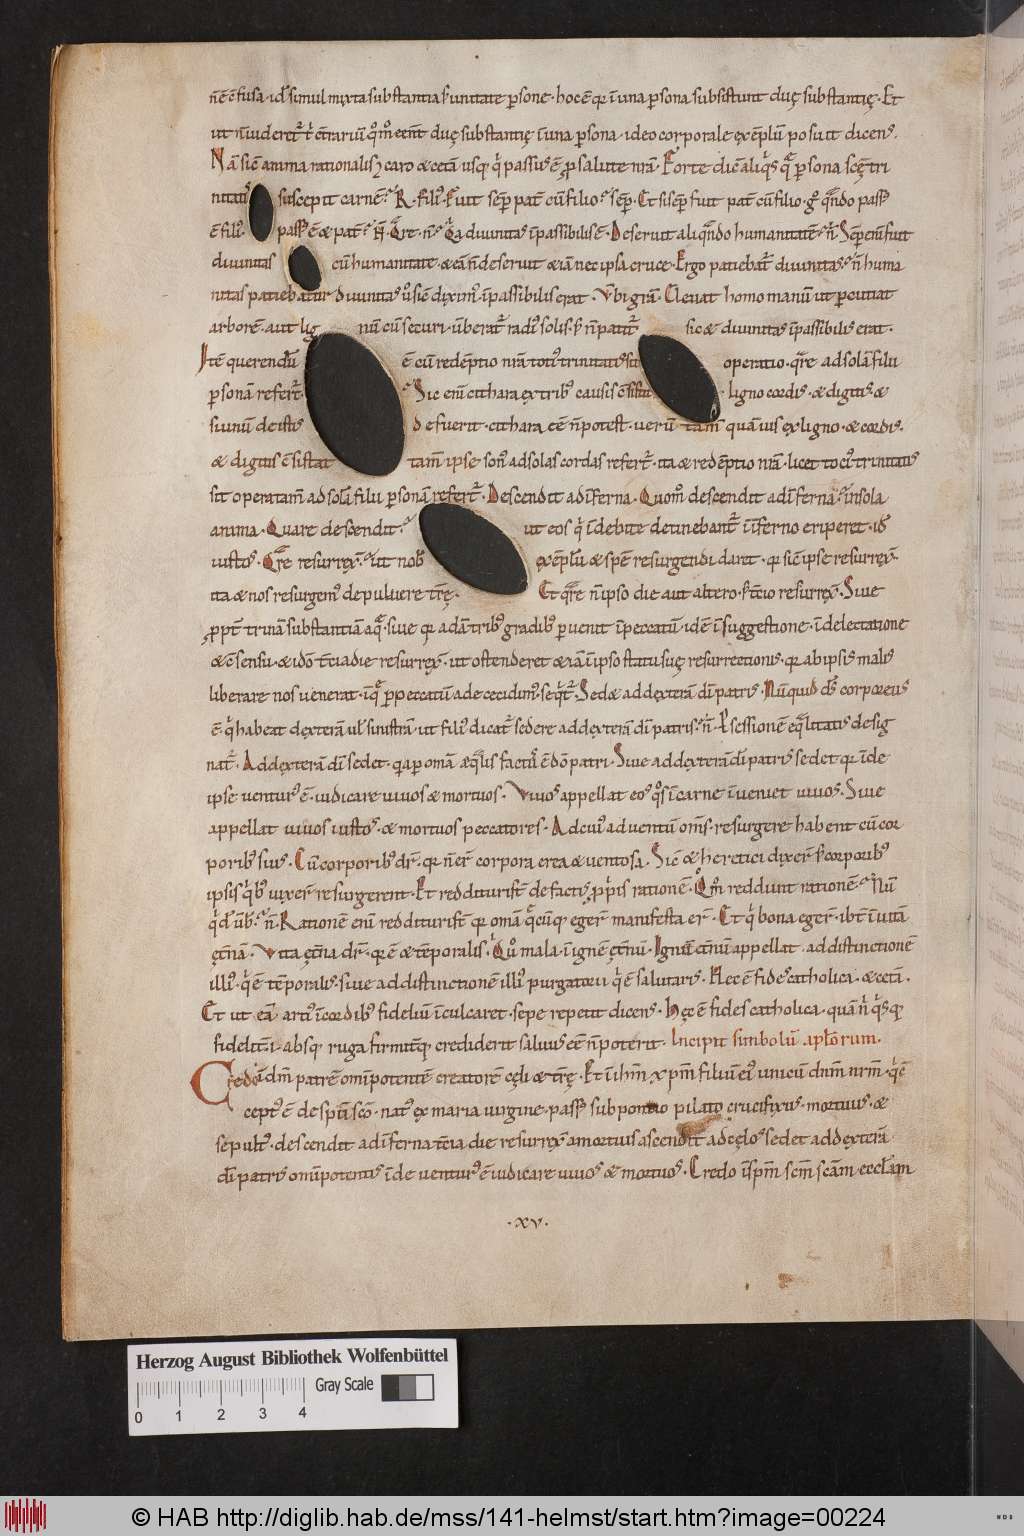 nē ē fusa · id ē simul mixta substantia s; unitate persone · hoc ē qđ in una persona subsistunt duę substantię · Et
ut n̄ uideretʳ ... cōtrariū quomō ... duę substantię in una persona · ideo corporale exēplū posuit dicens ·
Nā sic̄ anima rationalis ⁊ caro & cetā usq; qi passus ē p salute nrā · Forte dic̄ aliqis q̄ persona scę tri
nitatis suscepit carnē · R · filius · Fuit sep̄ pat̄ cū filio · sep̄ · Et si sep̄ fuit pat̄ cū filio · g° quando pass
ē filius · passus ē & pat̄ · n̄ · Qre · n̄ · Qa diuinitas īpassibilis ē · Deseruit aliquando humanitatē · n̄ · Sep̄ enī fuit
diuinitas cū humanitate · & eā n̄ deseruit & iā nec ipsa cruce · Ergo patiebatʳ diuinitas · n̄ huma
nitas patiebatur diuinitas ů sic̄ diximus īpassibilis erat · Vbi grā · Eleuat homo manū ut percutiat
arborē · aut lignū cū securi · ūberatʳ radius solis · s; n̄ patitʳ sic & diuinitas īpassibilis erat ·
Itē querendū ē cū redēptio nrā totius trinitatis sit operatio · qre ad solā filii
personā refertʳ · Sic enī cithara ex tribus causis cōsistit · ligno cordis · & digitis · &
si unū de istis defuerit · cithara eē n̄ potest · uerū tam̄ quāuis ex ligno · & cordis ·
& digitis cōsistat tam̄ ipse sonus ad solas cordas refertʳ · ita & redēptio nrā · licet totius trinitatis
sit opera tam̄ ad solā filii personā refertʳ · Descendit ad īferna · Quomō descendit ad īferna · in sola
anima · Quare descendit · ut eos qi īdebite detinebantʳ in inferno eriperet · id ē
iustos · Qre resurrex̄ · ut nobis exēplū & spē resurgendi daret · qđ sic̄ ipse resurrex̄ ·
ita & nos resurgemus de puluere trę · Et qre n̄ ipso die aut altero · s; tcio resurrex̄ · Siue
ppt̄ trinā substantiā aq̄ · siue qđ adā tribus gradibus peruenit ī peccatū · idē ī suggestione · ī delectatione
& cōsensu · & ido tcia die resurrex̄ · ut ostenderet & iā ī ipso statu suę resurrectionis · qđ ab ipsis malis
liberare nos uenerat · ī q̄ p peccatū adę cecidimus · seqitʳ · Sed & ad dexterā dī patris · Nunquid ds corporeus
ē · qi habeat dexterā uł sinistrā · ut filius dicatʳ sedere ad dexterā dī patris · n̄ · P sessionē eqlitatis desig
natʳ · Ad dexterā dī sedet · qa p omā ęqlis factus ē dō patri · Siue ad dexterā dī patris sedet qđ īde
ipse uenturus ē · iudicare uiuos & mortuos · Viuos appellat eos qos ī carne īueniet uiuos · Siue
appellat uiuos iustos · & mortuos peccatores · Ad cuius aduentū oms resurgere habent cū cor
poribus suis · Cū corporibus dr · qđ n̄ er corpora erea & uentosa · Sic̄ & heretici dixer s; corporibus
ipsis qibus uixer resurgerent · Et redditurist de factis ppis rationē · Qomō reddunt rationē · Nū
... · n̄ · Rationē enī redditurist qđ omā qcūq; eger manifesta er · Et qi bona eger · ibt ī uitā
ęt̄nā · Vita ęt̄na dr · qđ ē & tēporalis · Qi ů mala · ī ignē ęt̄nū · Ignū ęt̄nū appellat · ad distinctionē
illius · qi ē tēporalis · siue ad distinctionē illius purgatorii qi ē salutaris · Hec ē fides catholica · & cetā ·
Et ut eā artius ī cordibus fideliū īculcaret · sepe repetit dicens · Hęc ē fides catholica · quā n̄ qisq;
fidelit̄ · i · absq; ruga firmit̄q; crediderit saluus eē n̄ poterit · Incipit simbolū aplōrum ·
Credo ī dm̄ patrē omīpotentē creatorē cęli & trę · Et in ihm̄ xpm̄ filiū eius unicū dnm̄ nrm̄ · qi cō
ceptus ē de spū scō · natus ex maria uirgine · passus sub pontio pilato crucifixus · mortuus · &
sepultus · descendit ad īferna · tcia die resurrex̄ a mortuis ascendit ad cęlos sedet ad dexterā
dī patris omīpotentis īde uenturus ē iudicare uiuos & mortuos · Credo ī spm̄ scm̄ scām ecclām
· xv ·
Herzog August Bibliothek Wolfenbüttel
Gray Scale
0 1 2 3 4
© HAB http://diglib.hab.de/mss/141-helmst/start.htm?image=00224